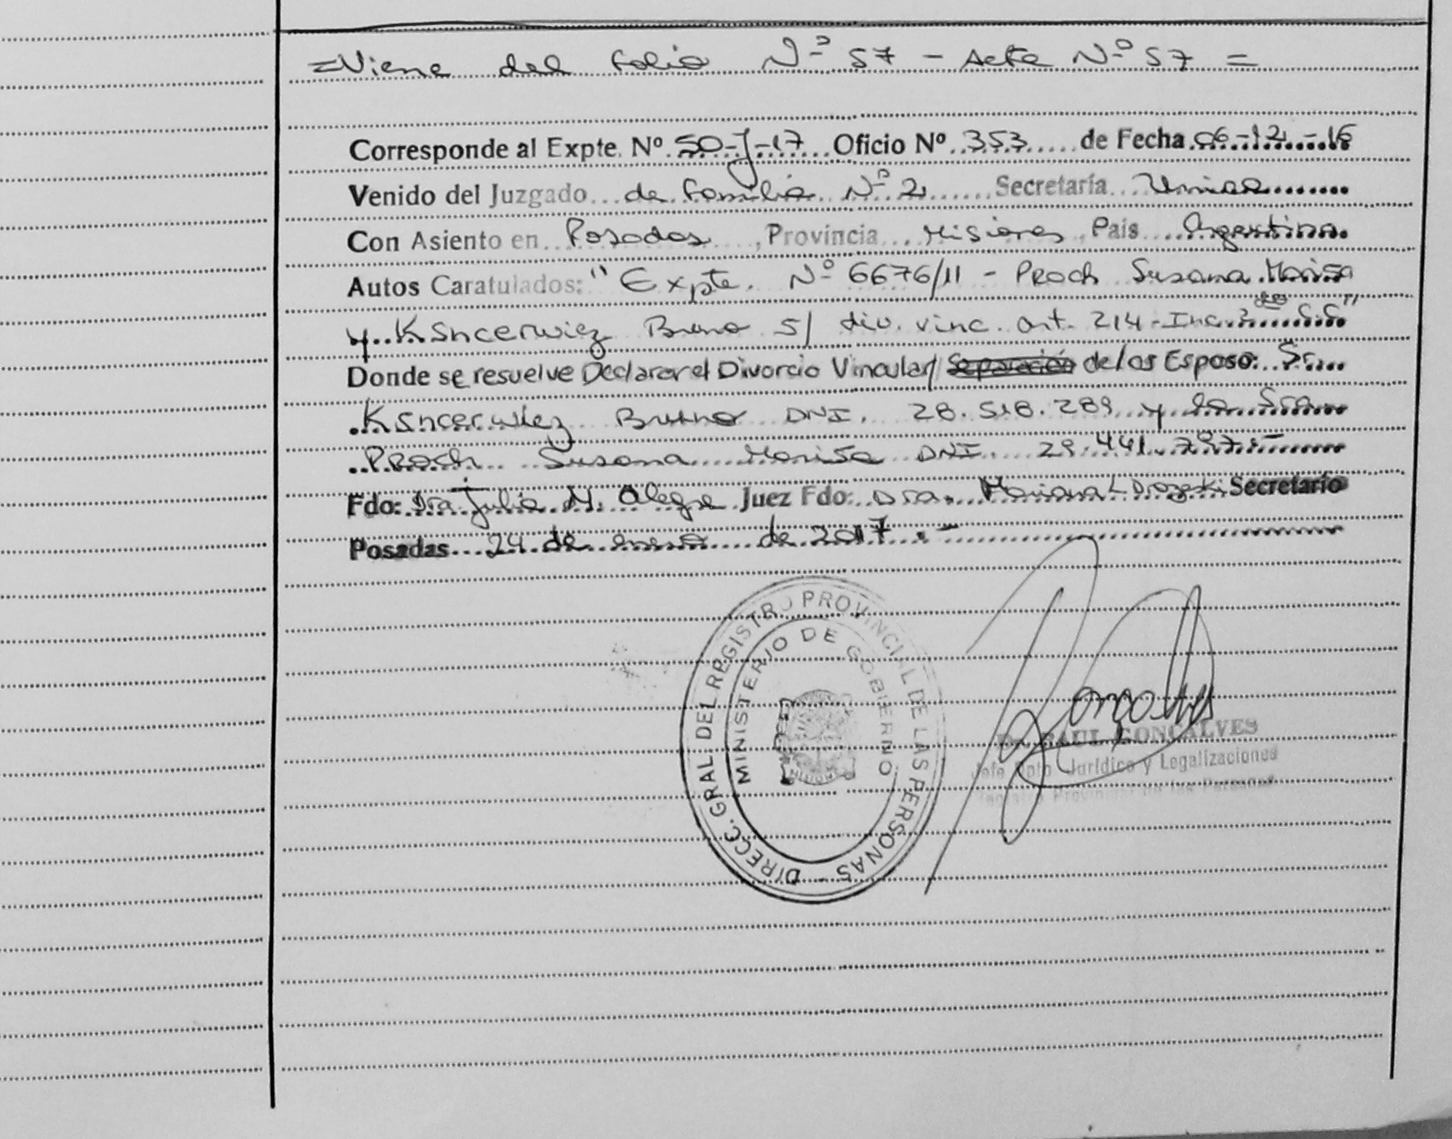 =Viene del folio Nº 57 - Acta Nº 57 =
Corresponde al Expte. Nº 50-J-17 Oficio Nº 353 de Fecha 06-12-16
Venido del Juzgado de Familia Nº 2 Secretaría Unica
Con Asiento en Posadas, Provincia Misiones, País Argentina.
Autos Caratulados: "Expte. Nº 6676/11 - Proch Susana Marisa
y Ksncerwiez Bruno s/ div. vinc. art. 214-Inc. 2do C.C."
Donde se resuelve Declarar el Divorcio Vincular/ Separación de los Esposo: Sr.
Ksncerwiez Bruno DNI. 28.518.289 y la Sra
Proch Susana Marisa DNI. 29.441.797.-
Fdo: Dra Julia M. Alegre Juez Fdo: Dra. Mariana L Secretario
Posadas 24 de enero de 2017.-
DIRECC. GRAL. DEL REGISTRO PROVINCIAL DE LAS PERSONAS -
MINISTERIO DE GOBIERNO
MISIONES
Dr. RAUL GONCALVES
Jefe Dpto Jurídico y Legalizaciones
Registro Provincial de las Personas